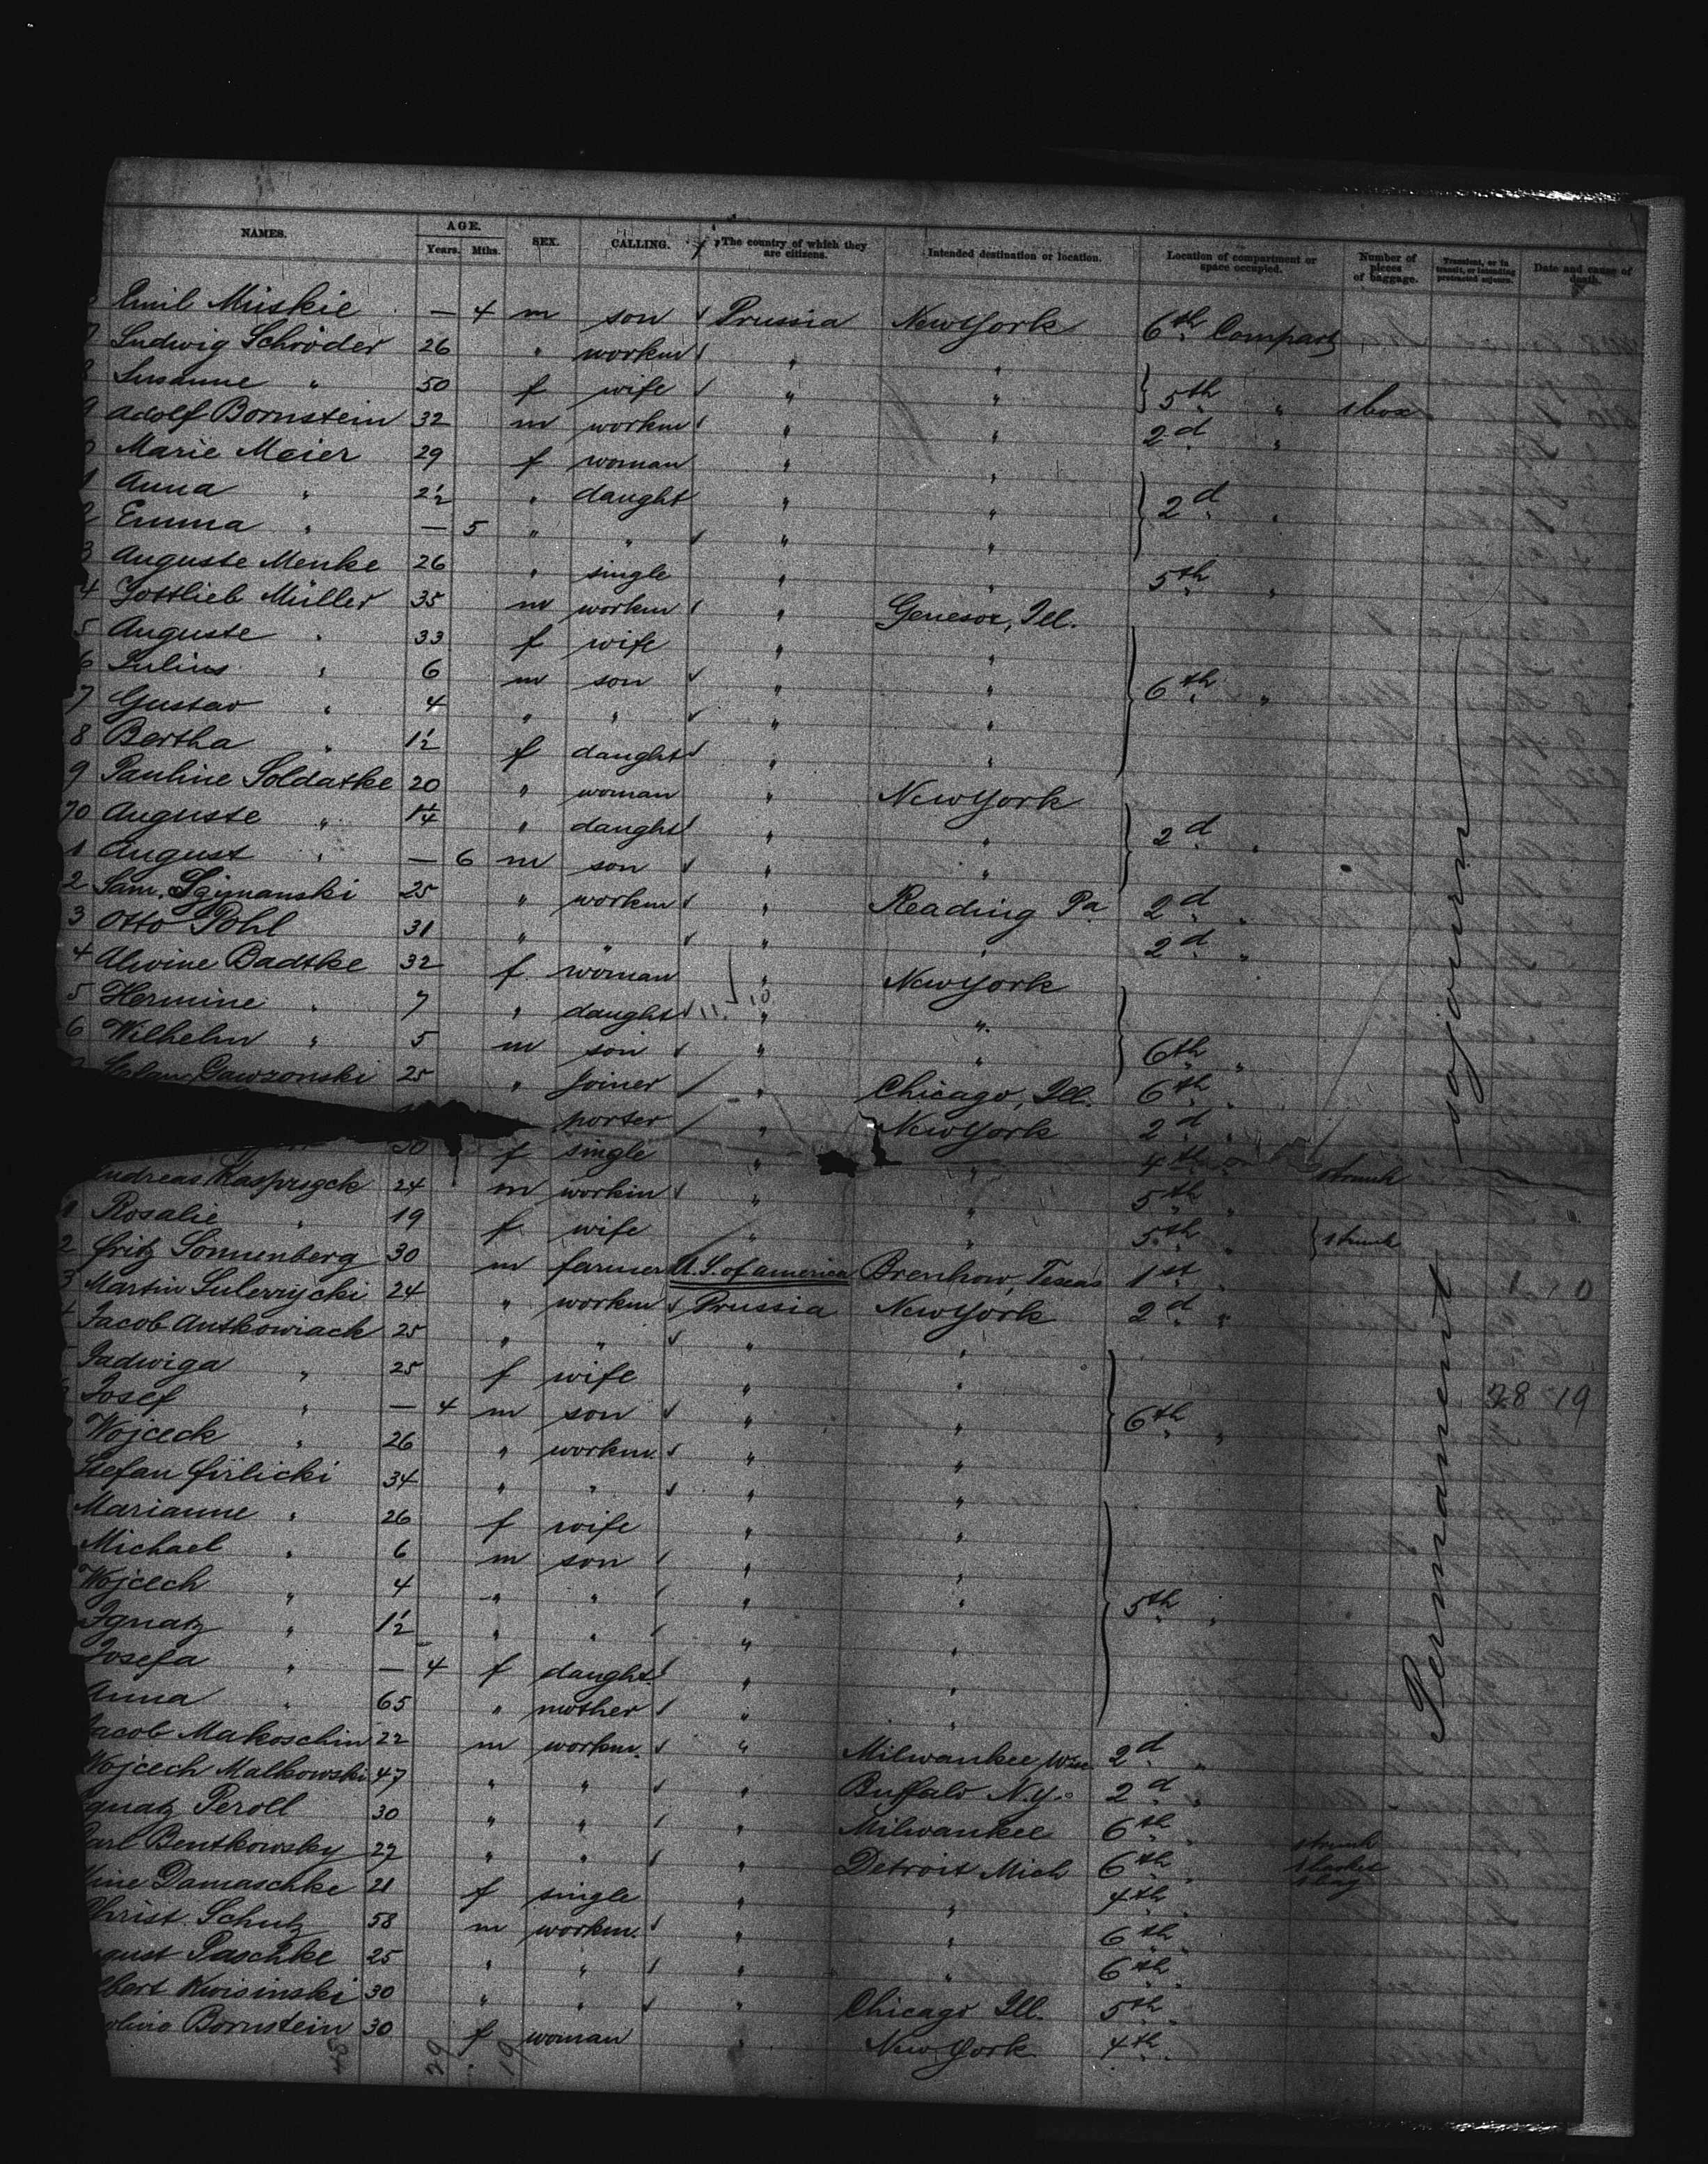 NAMES. AGE. Years. Mths. SEX. CALLING. The country of which they are citizens. Intended destination or location. Location of compartment or space occupied. Number of pieces of baggage. Transient, or in transit, or intending protracted sojourn. Date and cause of death.
Emil Muskie — 4 m son Prussia New York 6th Compart
7 Ludwig Schröder 26 " workm " "
8 Susanne " 50 f wife " " 5th " 1 box
9 Adolf Bornstein 32 m workm " " 2d "
Marie Meier 29 f woman " "
1 Anna " 2½ " daught " " 2d "
2 Emma " — 5 " " " "
3 Auguste Menke 26 " single " " 5th "
4 Gottlieb Müller 35 m workm " Geneseo, Ill.
5 Auguste " 33 f wife " "
6 Julius " 6 m son " " 6th "
7 Gustav " 4 " " " "
8 Bertha " 1½ f daught " "
9 Pauline Soldatke 20 " woman " New York
70 Auguste " 1¼ " daught " " 2d "
1 August " — 6 m son " "
2 Sam. Szymanski 25 " workm " Reading Pa 2d "
3 Otto Pohl 31 " " " " 2d "
4 Alwine Badtke 32 f woman " New York
5 Hermine " 7 " daught 11. 10 " "
6 Wilhelm " 5 m son " " 6th "
Gawzonski 25 " joiner " Chicago, Ill. 6th "
porter " New York 2d "
30 f single " " 4th " 1 trunk
Andreas Kasprzgck 24 m workm " " 5th "
1 Rosalie " 19 f wife " " 5th " 1 trunk
2 Fritz Sonnenberg 30 m farmer U.S. of America Brenhow, Texas 1st " 1 0
3 Martin Sulerzycki 24 " workm Prussia New York 2d "
4 Jacob Antkowiack 25 " " " "
Jadwiga " 25 f wife " "
Josef " — 4 m son " " 6th " 28 19
Wojceck " 26 " workm. " "
Stefan Girlicki 34 " " " "
Marianne " 26 f wife " "
Michael " 6 m son " "
Wojcech " 4 " " " " 5th "
Ignatz " 1½ " " " "
Josefa " — 4 f daught. " "
Anna " 65 " mother " "
Jacob Makoschin 22 m workm. " Milwaukee Wis. 2d "
Wojcech Malkowski 47 " " " Buffalo N.Y. 2d "
Ignatz Peroll 30 " " " Milwaukee 6th " 1 trunk
Carl Bentkowsky 27 " " " Detroit Mich 6th " 1 basket 1 bag
Mine Damaschke 21 f single " " 4th "
Christ. Schulz 58 m workm. " " 6th "
August Paschke 25 " " " " 6th "
Albert Kwisinski 30 " " " Chicago Ill. 5th "
Bornstein 30 f woman " New York 4th "
29 19
Permanent sojourn